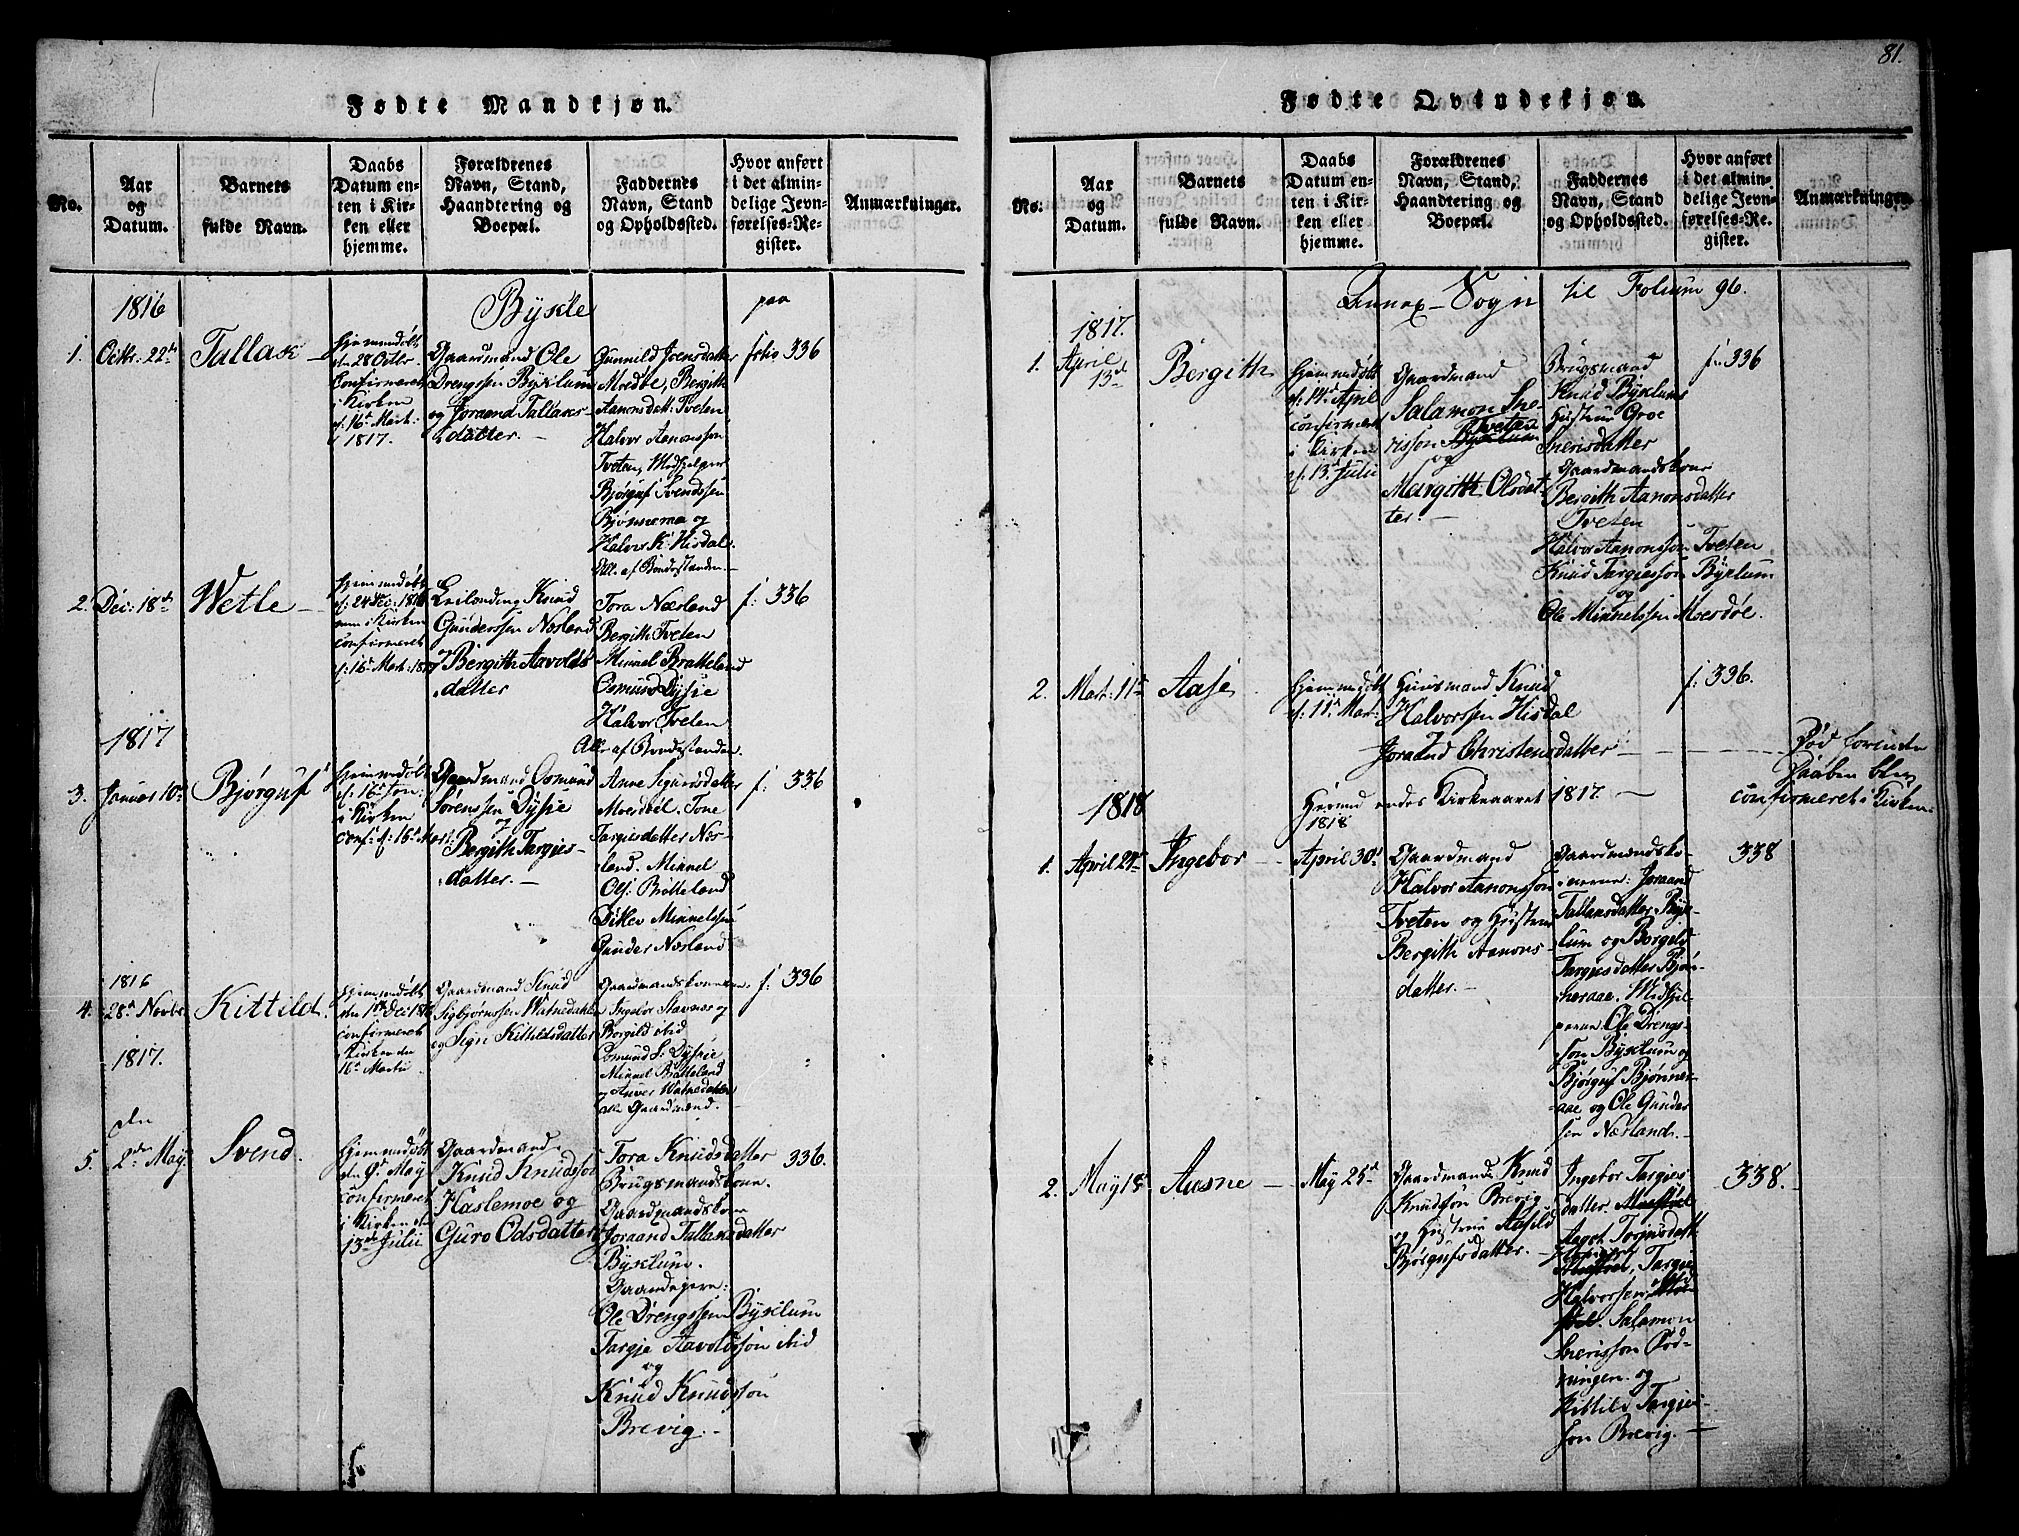 81.
Fødte Mandkjøn.
No.
Aar
og
Datum.
Barnets
fulde Navn.
Daabs
Datum en-
ten i Kir-
ken eller
hjemme.
Forældrenes
Navn, Stand,
Haandtering og
Boepæl.
Faddernes
Navn, Stand
og Opholdssted.
Hvor anført
i det almin-
delige Jevn-
førelses-Re-
gister.
Anmærkninger.
1816
Bykle
paa
1.
Octbr: 22de
Tallak
hjemmedøbt
d. 28 Octbr
Confirmeret
i Kirken
d: 16d Mart:
1817.
Gaardmand Ole
Drengssen Byklum
og Joraand Tallaks-
datter.
Gunnild Joensdatter
Moedbe, Bergith
Aanonsdatt: Tveten
Halvor Aanonsson
Tveten, Medhjelper
Bjørguf Svendssen
Bjønneraa og
Halvor K: Hisdal.
Alle af Bondestanden.
folio 336
2.
Dec: 18de
Wetle
hjemmedøbt
d: 24 Dec: 1816
i Kirken
confirmeret
d: 16d Mart: 1817
Leilænding Knud
Gunderssen Nosland
Bergith Aavolds
datter
Tora Næsland
Bergith Tveten
Mikkel Bratteland
Osmund Dysie
Halvor Tveten
Alle af Bondestanden.
f: 336
1817
3.
Januar 10de
Bjørguf
hjemmedøbt
d: 16d Jan:
i Kirken
conf: d: 16d Mart:
Gaardmand Osmund
Sørenssen Dysie
og
Bergith Targies-
datter.
Anne Sigurdsdatter
Moesdøl. Tone
Targiesdatter Nos-
land. Mikkel
Ols: Bratteland
Ditlev Mikkelssen
Gunder Nosland
f: 336
1816
4.
28d Novbr
Kittild
hjemmedøbt
den 1ste Dec: 1816
confirmeret
i Kirken den
16d Martii
Gaardmand Knud
Sigbjørnssen Watnedahlen
og Sign Kittildsdatter
Gaardmandskonerne
Ingebor Stavnes og
Borgild ibid
Osmund S: Dysie
Mikkel Bratteland
og Anver Watnedahlen
alle Gaardmænd.
f: 336
1817.
den
5.
2den May
Svend.
hjemmedøbt
den 9d May
confirmeret
i Kirken den
13de Julii
Gaardmand
Knud Knudsson
Hoslemoe og
Guro Odsdatter
Tora Knudsdatter
Brugsmandskone.
Gaardmandskone
Joraand Tallaksdatter
Byklum.
Gaardegere:
Ole Drengssen Byklum
Targie Aavoldsson ibid
og
Knud Knudsson
Brevig.
336.
Fødte Qvindekjøn.
No.
Aar
og
Datum.
Barnets
fulde Navn.
Daabs
Datum en-
ten i Kir-
ken eller
hjemme.
Forældrenes
Navn, Stand,
Haandtering og
Boepæl.
Faddernes
Navn, Stand
og Opholdssted.
Hvor anført
i det almin-
delige Jevn-
førelses-Re-
gister.
Anmærkninger.
Annex-Sogn til Folium 96.
1817.
1.
April
13d
Bergith
hjemmedøbt
d: 14d April
confirmeret
i Kirken
d: 13d Julii
Gaardmand
Salamon Sne-
risson Tveten
og
Margith Olsdat-
ter.
Brugsmand
Knud Byklum
Hustrue Groe
Snerisdatter
Gaardmandskone
Bergith Aanonsdatter
Tveten
Halvor Aanonsson Tveten
Knud Targiesson Byklum
og
Ole Mikkelssen Moesdøl.
f: 336
2.
Mart: 11d
Aase
hjemmedøbt
d: 11d Mart:
Huusmand Knud
Halvorssen Hisdal
Joraand Christensdatter
f: 336.
Død forinden
Daaben blev
confirmeret i Kirken.
1818
Hermed endes Kirkeaaret 1817.
1818
1.
April 24de
Ingebor
April 30d
Gaardmand
Halvor Aanonsson
Tveten og Hustrue
Bergith Aanons-
datter.
Gaardmandsko-
nerne: Joraand
Tallaksdatter Byk-
lum og Borgild
Targiesdatter Bjøn-
neraae. Medhjel-
perne Ole Drengs-
son Byklum og
Bjørguf Bjønner-
aae og Ole Gunder
sen Næsland.
338
2.
May 18
Aasne
May 25d
Gaardmand Knud
Knudsøn Brevig
og Hustrue Aasild
Bjørgufsdatter.
Ingebor Targies
datter
Aagot Torjusdatt:
Targie
Halvorssen
Salamon
Snerisson
og
Kittild Targies-
son Brevig.
338.